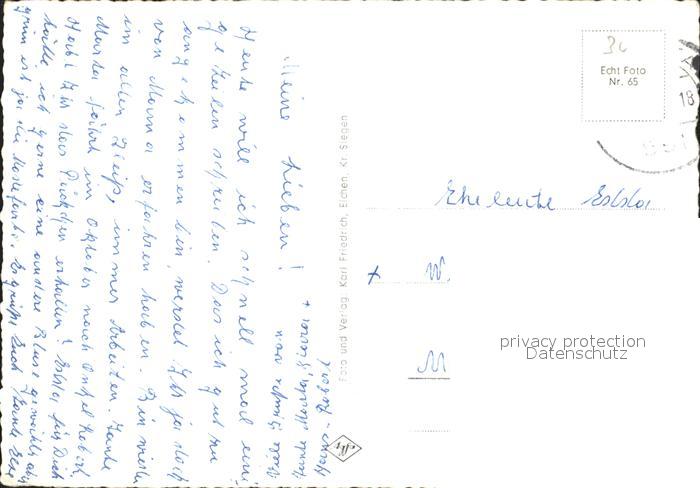 Meine Lieben!
Heute will ich schnell mal eini
ge Zeilen schreiben. Das ich gut
angekommen bin, werdet Ihr ja doch
von Mama erfahren haben. Bin wieder
im alten Fleiß, immer Arbeiten. Tante
Martha fährt im Oktober nach Onkel Robert.
Habt Ihr das Päckchen erhalten? für Dich
hätte ich gerne eine andere Bluse gewählt aber
grün ist ja die Modefarbe. Es grüßt Euch
Foto und Verlag Karl Friedrich, Eichen, Kr. Siegen
36
Echt Foto
Nr. 65
18
Eheleute
W.
M
privacy protection
Datenschutz